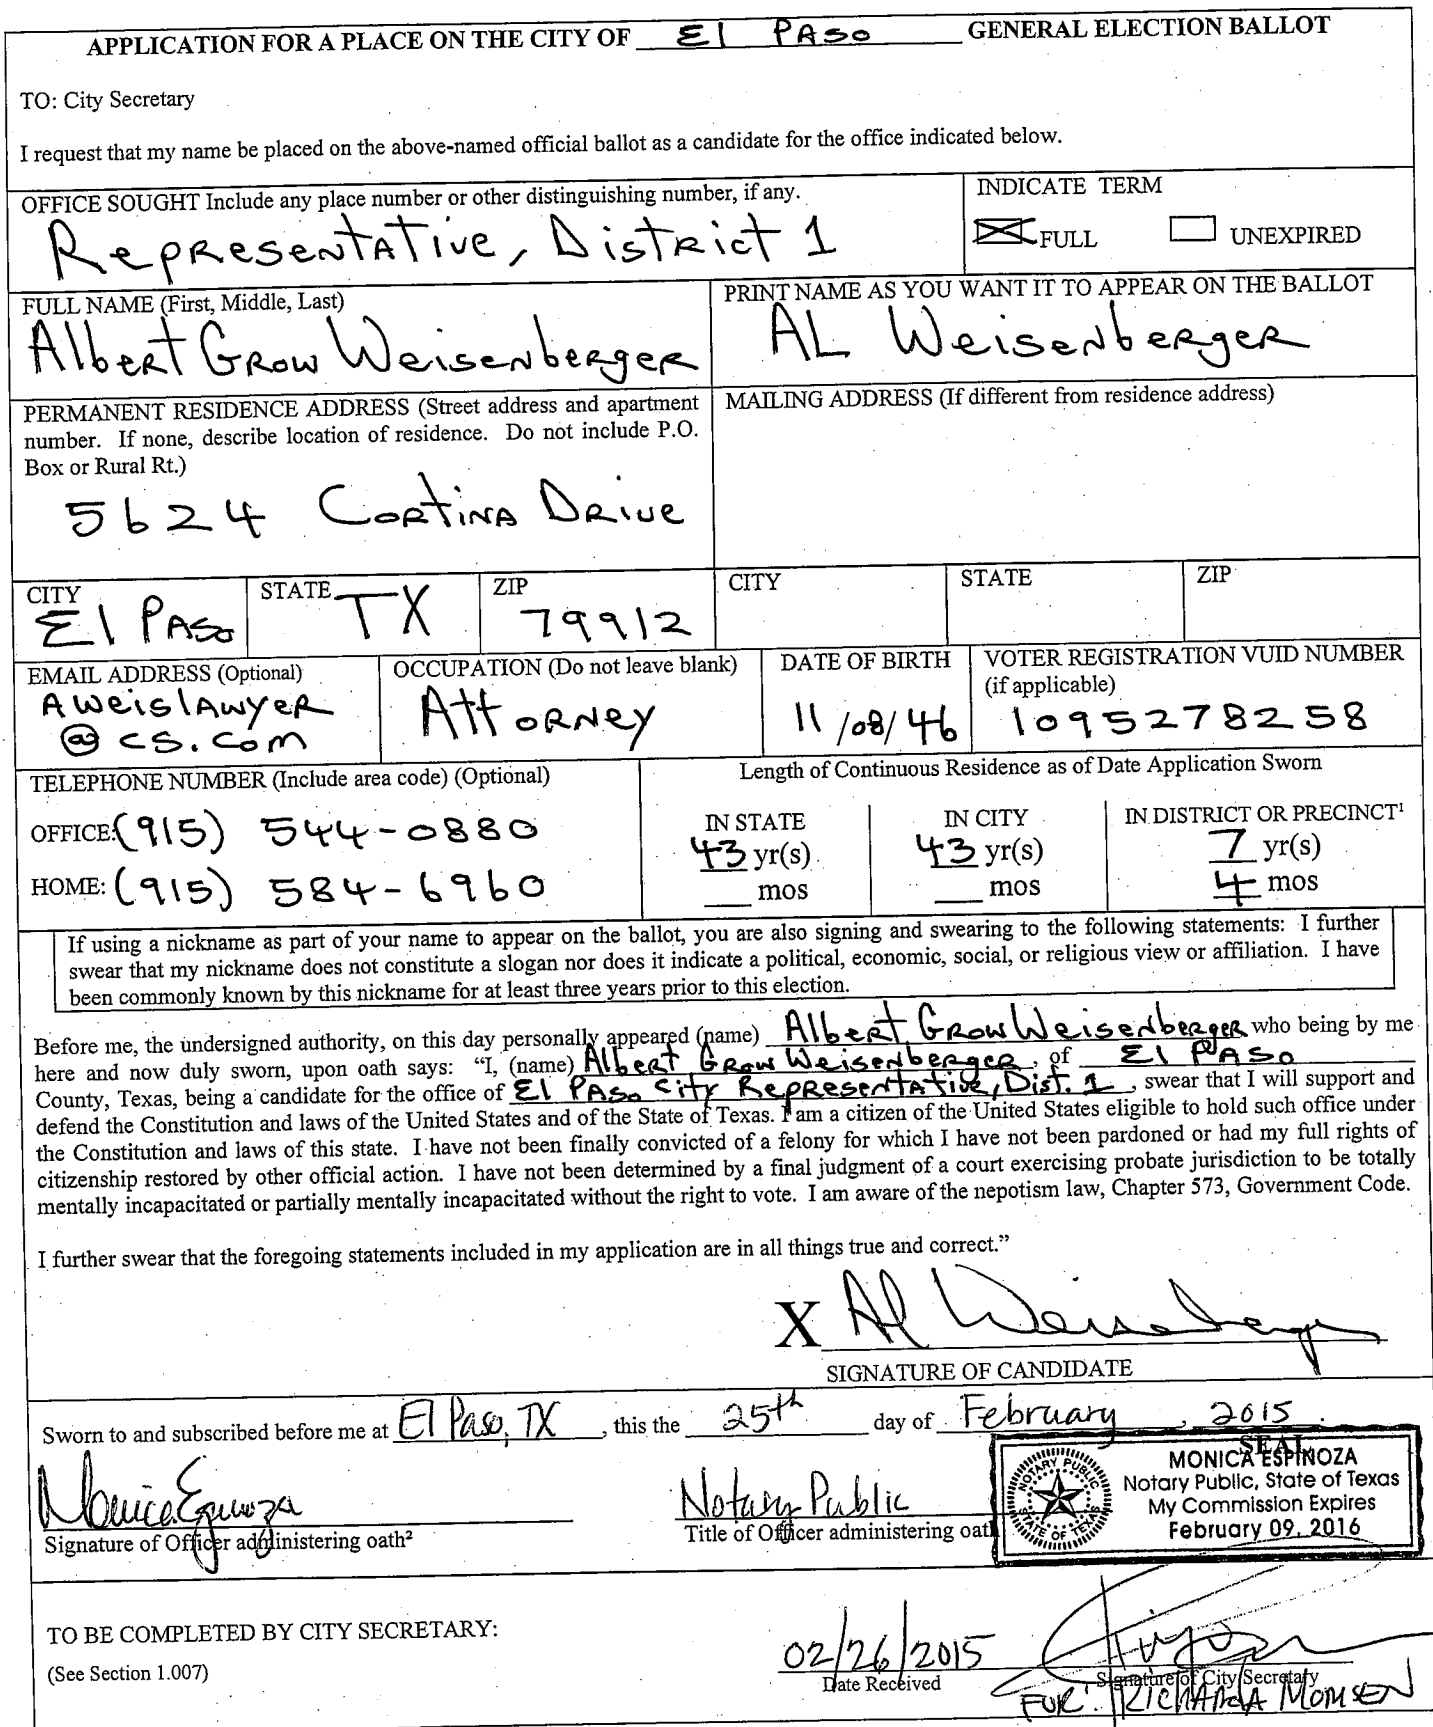 APPLICATION FOR A PLACE ON THE CITY OF El Paso GENERAL ELECTION BALLOT
TO: City Secretary
I request that my name be placed on the above-named official ballot as a candidate for the office indicated below.
OFFICE SOUGHT Include any place number or other distinguishing number, if any.
Representative, District 1
INDICATE TERM
FULL UNEXPIRED
FULL NAME (First, Middle, Last)
Albert Grow Weisenberger
PRINT NAME AS YOU WANT IT TO APPEAR ON THE BALLOT
AL Weisenberger
PERMANENT RESIDENCE ADDRESS (Street address and apartment
number. If none, describe location of residence. Do not include P.O.
Box or Rural Rt.)
5624 Cortina Drive
MAILING ADDRESS (If different from residence address)
CITY
El Paso
STATE
TX
ZIP
79912
CITY
STATE
ZIP
EMAIL ADDRESS (Optional)
Aweislawyer
@cs.com
OCCUPATION (Do not leave blank)
Attorney
DATE OF BIRTH
11/08/46
VOTER REGISTRATION VUID NUMBER
(if applicable)
1095278258
TELEPHONE NUMBER (Include area code) (Optional)
OFFICE: (915) 544-0880
HOME: (915) 584-6960
Length of Continuous Residence as of Date Application Sworn
IN STATE
43 yr(s)
mos
IN CITY
43 yr(s)
mos
IN DISTRICT OR PRECINCT¹
7 yr(s)
4 mos
If using a nickname as part of your name to appear on the ballot, you are also signing and swearing to the following statements: I further
swear that my nickname does not constitute a slogan nor does it indicate a political, economic, social, or religious view or affiliation. I have
been commonly known by this nickname for at least three years prior to this election.
Before me, the undersigned authority, on this day personally appeared (name) Albert Grow Weisenberger who being by me
here and now duly sworn, upon oath says: "I, (name) Albert Grow Weisenberger, of El Paso
County, Texas, being a candidate for the office of El Paso City Representative, Dist. 1, swear that I will support and
defend the Constitution and laws of the United States and of the State of Texas. I am a citizen of the United States eligible to hold such office under
the Constitution and laws of this state. I have not been finally convicted of a felony for which I have not been pardoned or had my full rights of
citizenship restored by other official action. I have not been determined by a final judgment of a court exercising probate jurisdiction to be totally
mentally incapacitated or partially mentally incapacitated without the right to vote. I am aware of the nepotism law, Chapter 573, Government Code.
I further swear that the foregoing statements included in my application are in all things true and correct."
X Al Weisenberger
SIGNATURE OF CANDIDATE
Sworn to and subscribed before me at El Paso, TX, this the 25th day of February, 2015.
SEAL
Monica Espinoza
Signature of Officer administering oath²
Notary Public
Title of Officer administering oath
NOTARY PUBLIC
STATE OF TEXAS
MONICA ESPINOZA
Notary Public, State of Texas
My Commission Expires
February 09, 2016
TO BE COMPLETED BY CITY SECRETARY:
(See Section 1.007)
02/26/2015
Date Received
Signature of City Secretary
FOR: RICHARDA MOMSEN